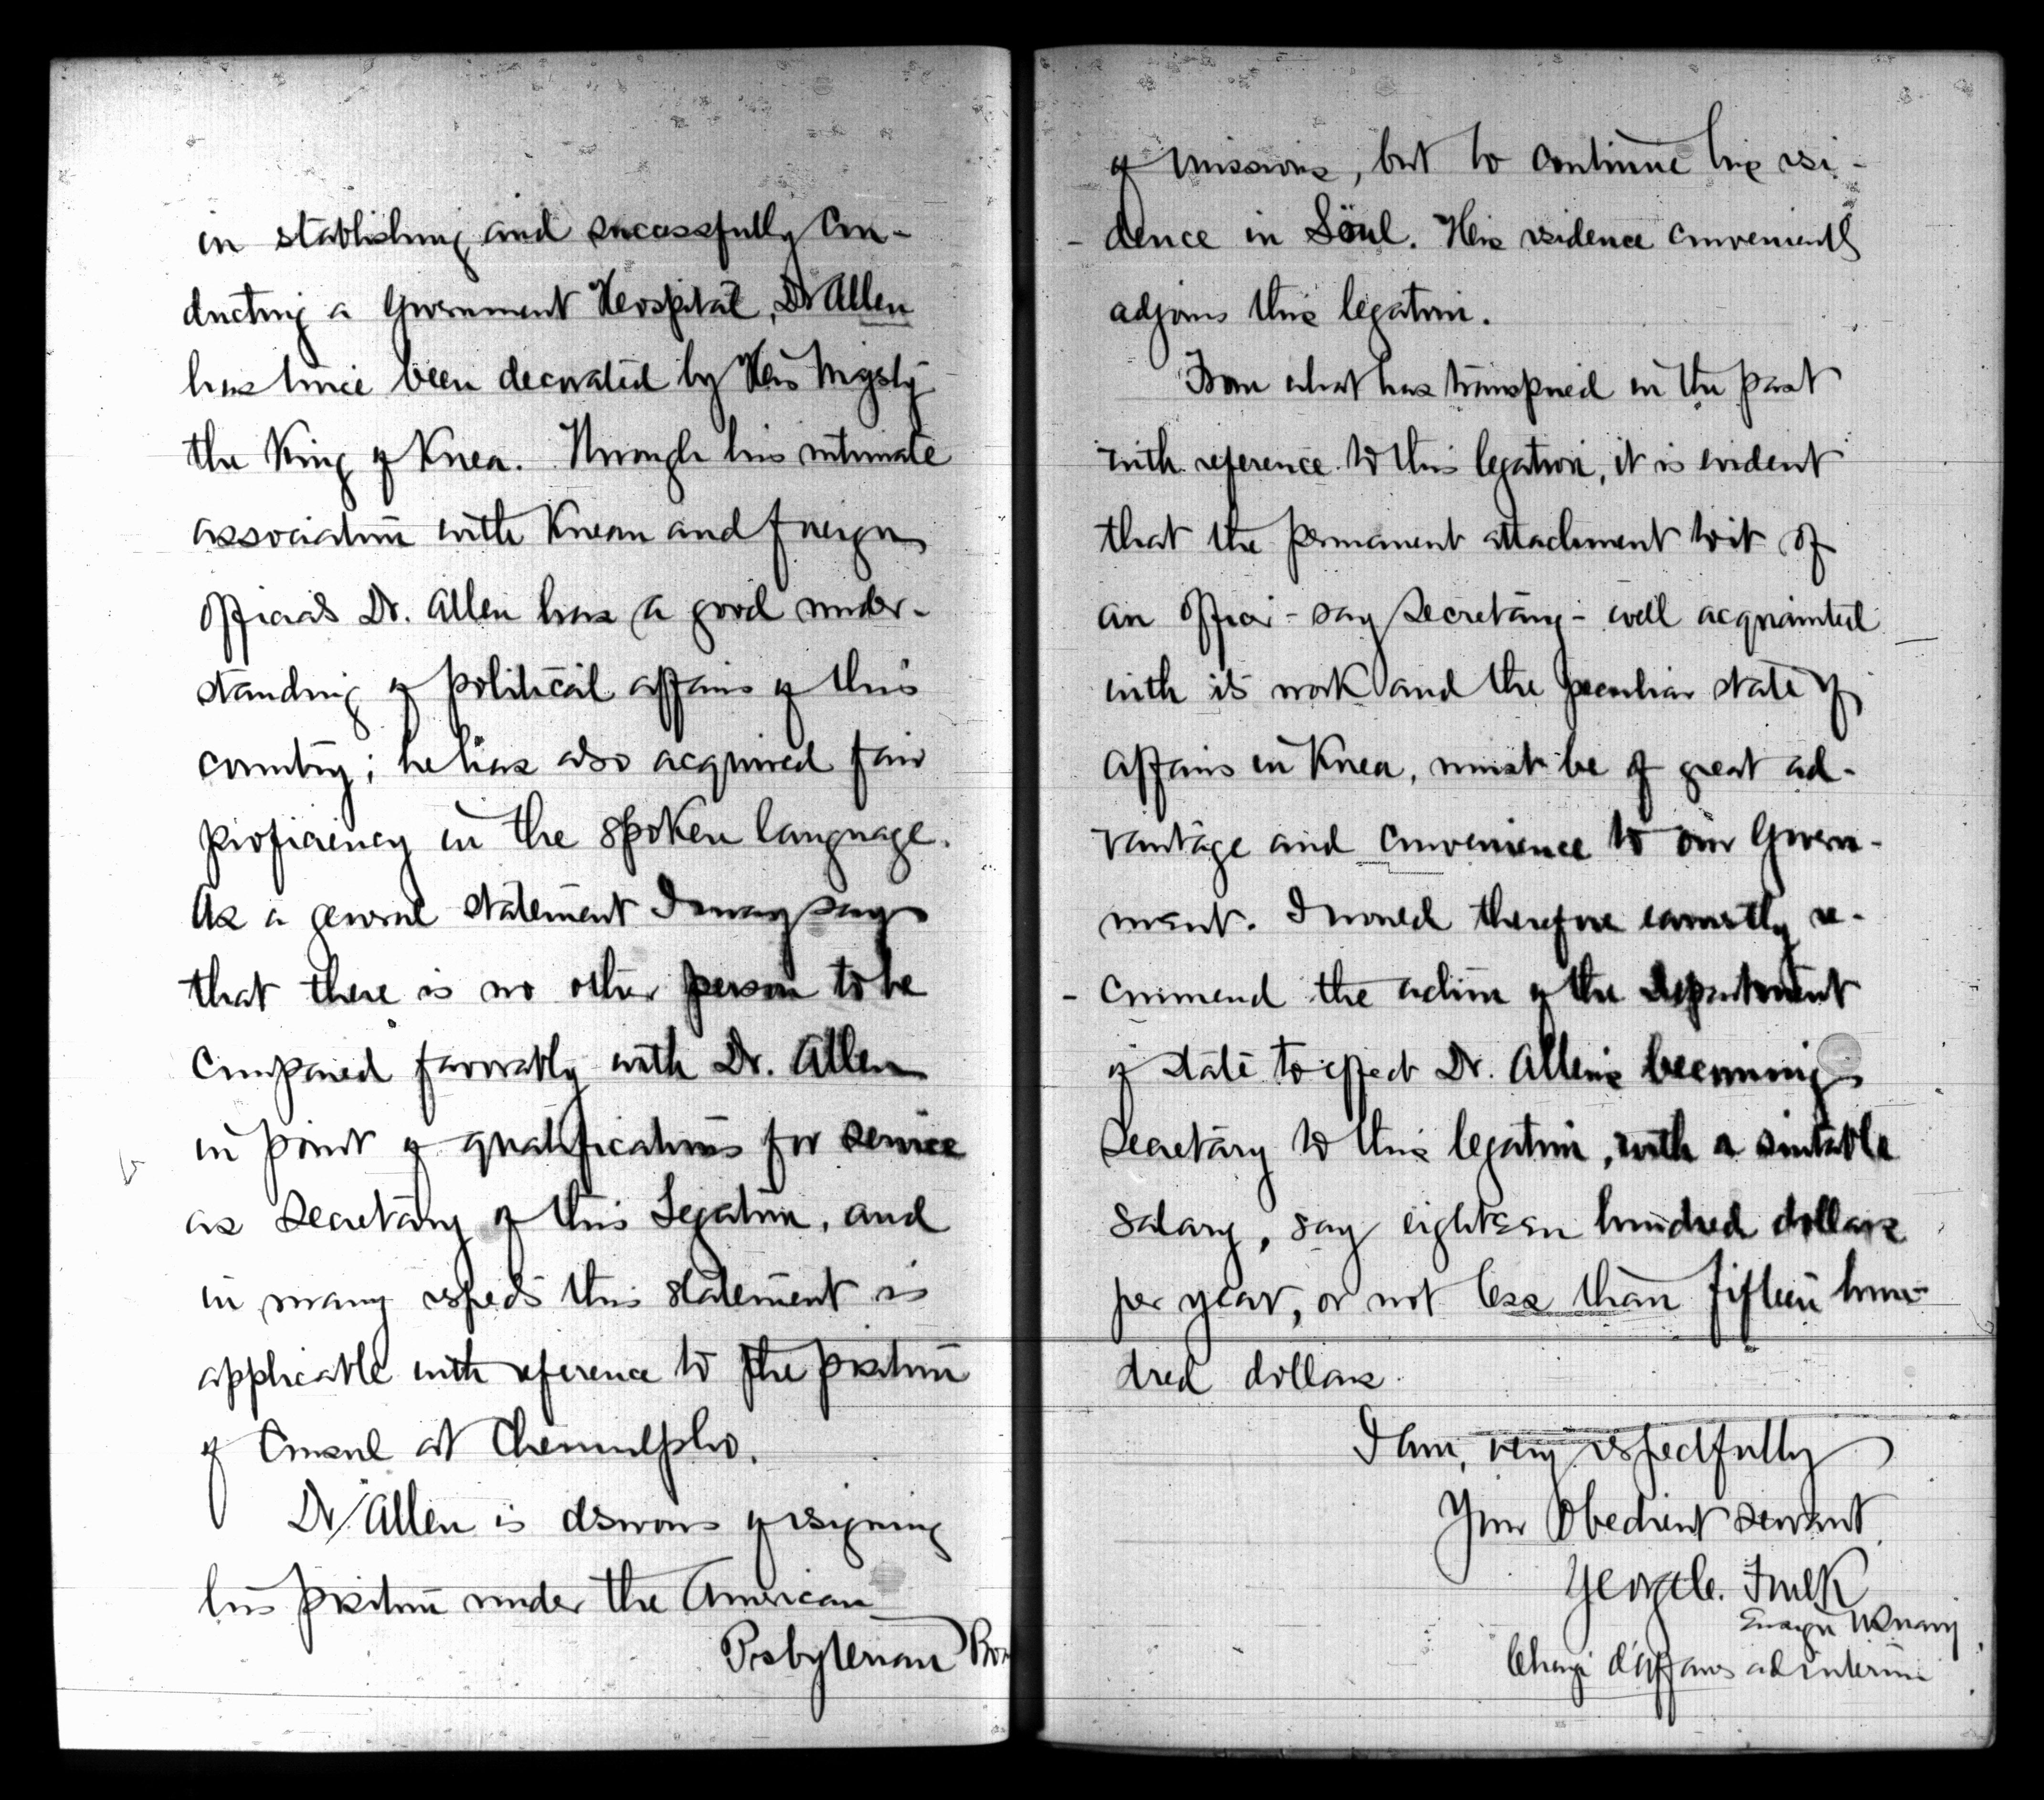 in establishing and successfully con-
ducting a Government Hospital, Dr Allen
has twice been decorated by His Majesty
the King of Korea. Through his intimate
association with Korean and foreign
officials Dr. Allen has a good under-
standing of political affairs of this
country; he has also acquired fair
proficiency in the spoken language.
As a general statement I may say
that there is no other person to be
compared favorably with Dr. Allen
in point of qualifications for service
as Secretary of this Legation, and
in many respects this statement is
applicable with reference to the position
of Consul at Chemulpho.
Dr. Allen is desirous of resigning
his position under the American
Presbyterian
of missions, but to continue his resi-
-dence in Söul. His residence conveniently
adjoins this legation.
From what has transpired in the past
with reference to this legation, it is evident
that the permanent attachment to it of
an officer - say Secretary - well acquainted
with its work and the peculiar state of
affairs in Korea, must be of great ad-
vantage and convenience to our Govern-
ment. I would therefore earnestly re-
-commend the action of the Department
of State to effect Dr. Allen's becoming
Secretary to this legation, with a suitable
salary, say eighteen hundred dollars
per year, or not less than fifteen hun-
dred dollars.
I am, very respectfully
Your obedient servant.
George C. Foulk
Ensign U.S. Navy
Chargé d'Affaires ad interim